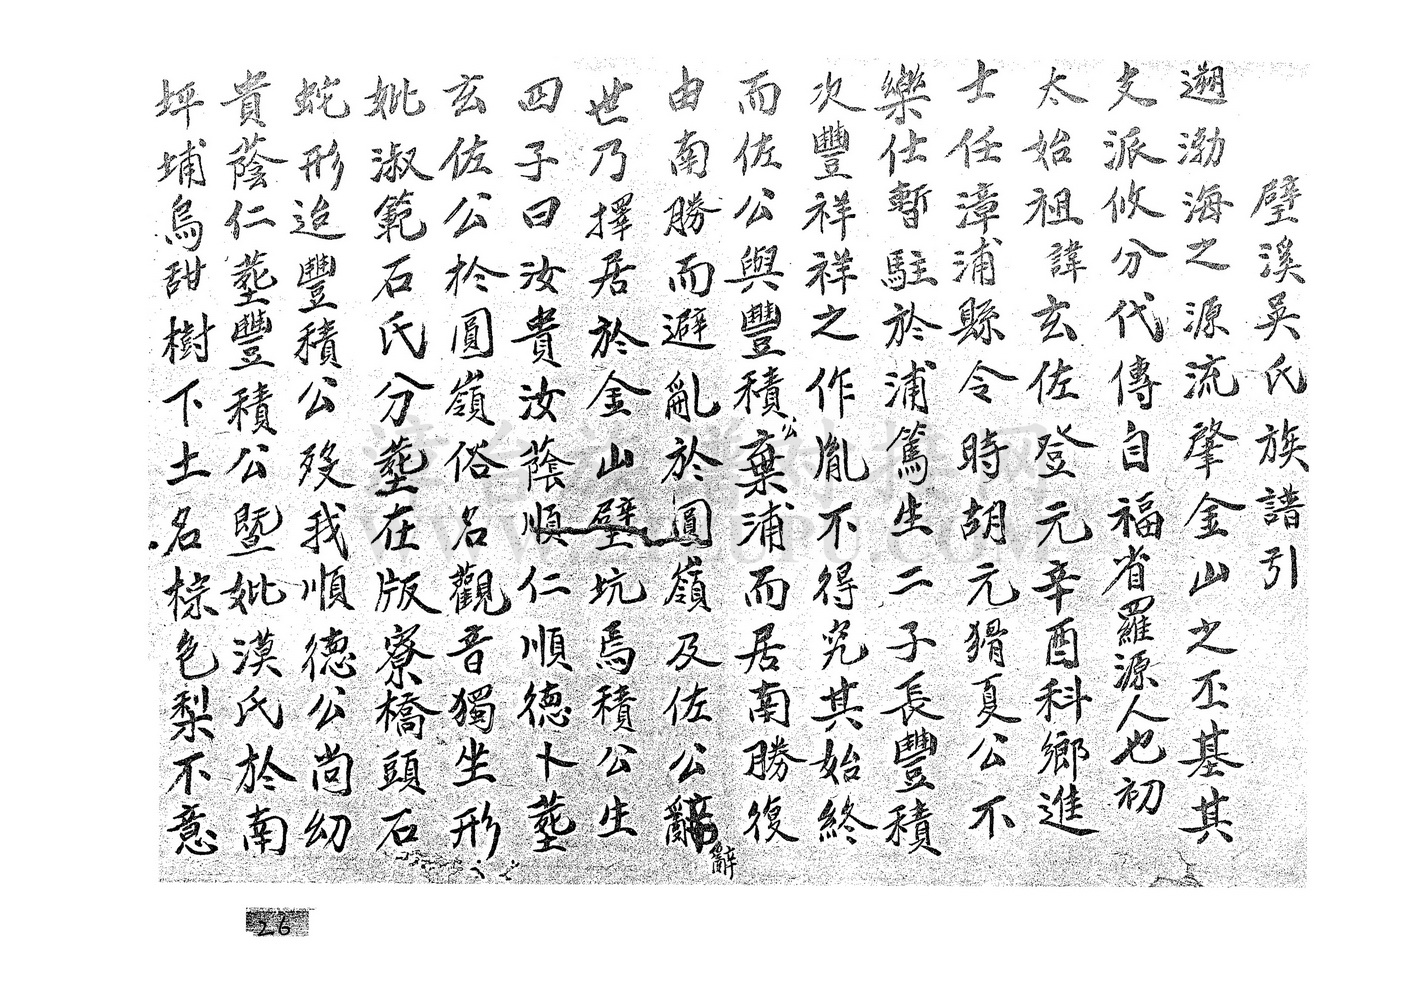 璧溪吳氏族譜引
遡渤海之源流肇金山之丕基其
支派攸分代傳自福省羅源人也初
太始祖諱玄佐登元辛酉科鄉進
士任漳浦縣令時胡元猾夏公不
樂仕暫駐於浦篤生二子長豐積
次豐祥祥之作胤不得究其始終
而佐公與豐積公棄浦而居南勝復
由南勝而避亂於圓嶺及佐公辭
世乃擇居於金山璧坑焉積公生
四子曰汝貴汝蔭順仁順德卜塟
玄佐公於圓嶺俗名觀音獨坐形
妣淑範石氏分塟在版寮橋頭石
蛇形迨豐積公歿我順德公尚幼
貴蔭仁塟豐積公暨妣漠氏於南
坪埔烏甜樹下土名棕色梨不意
辭
26
WWW.    .COM